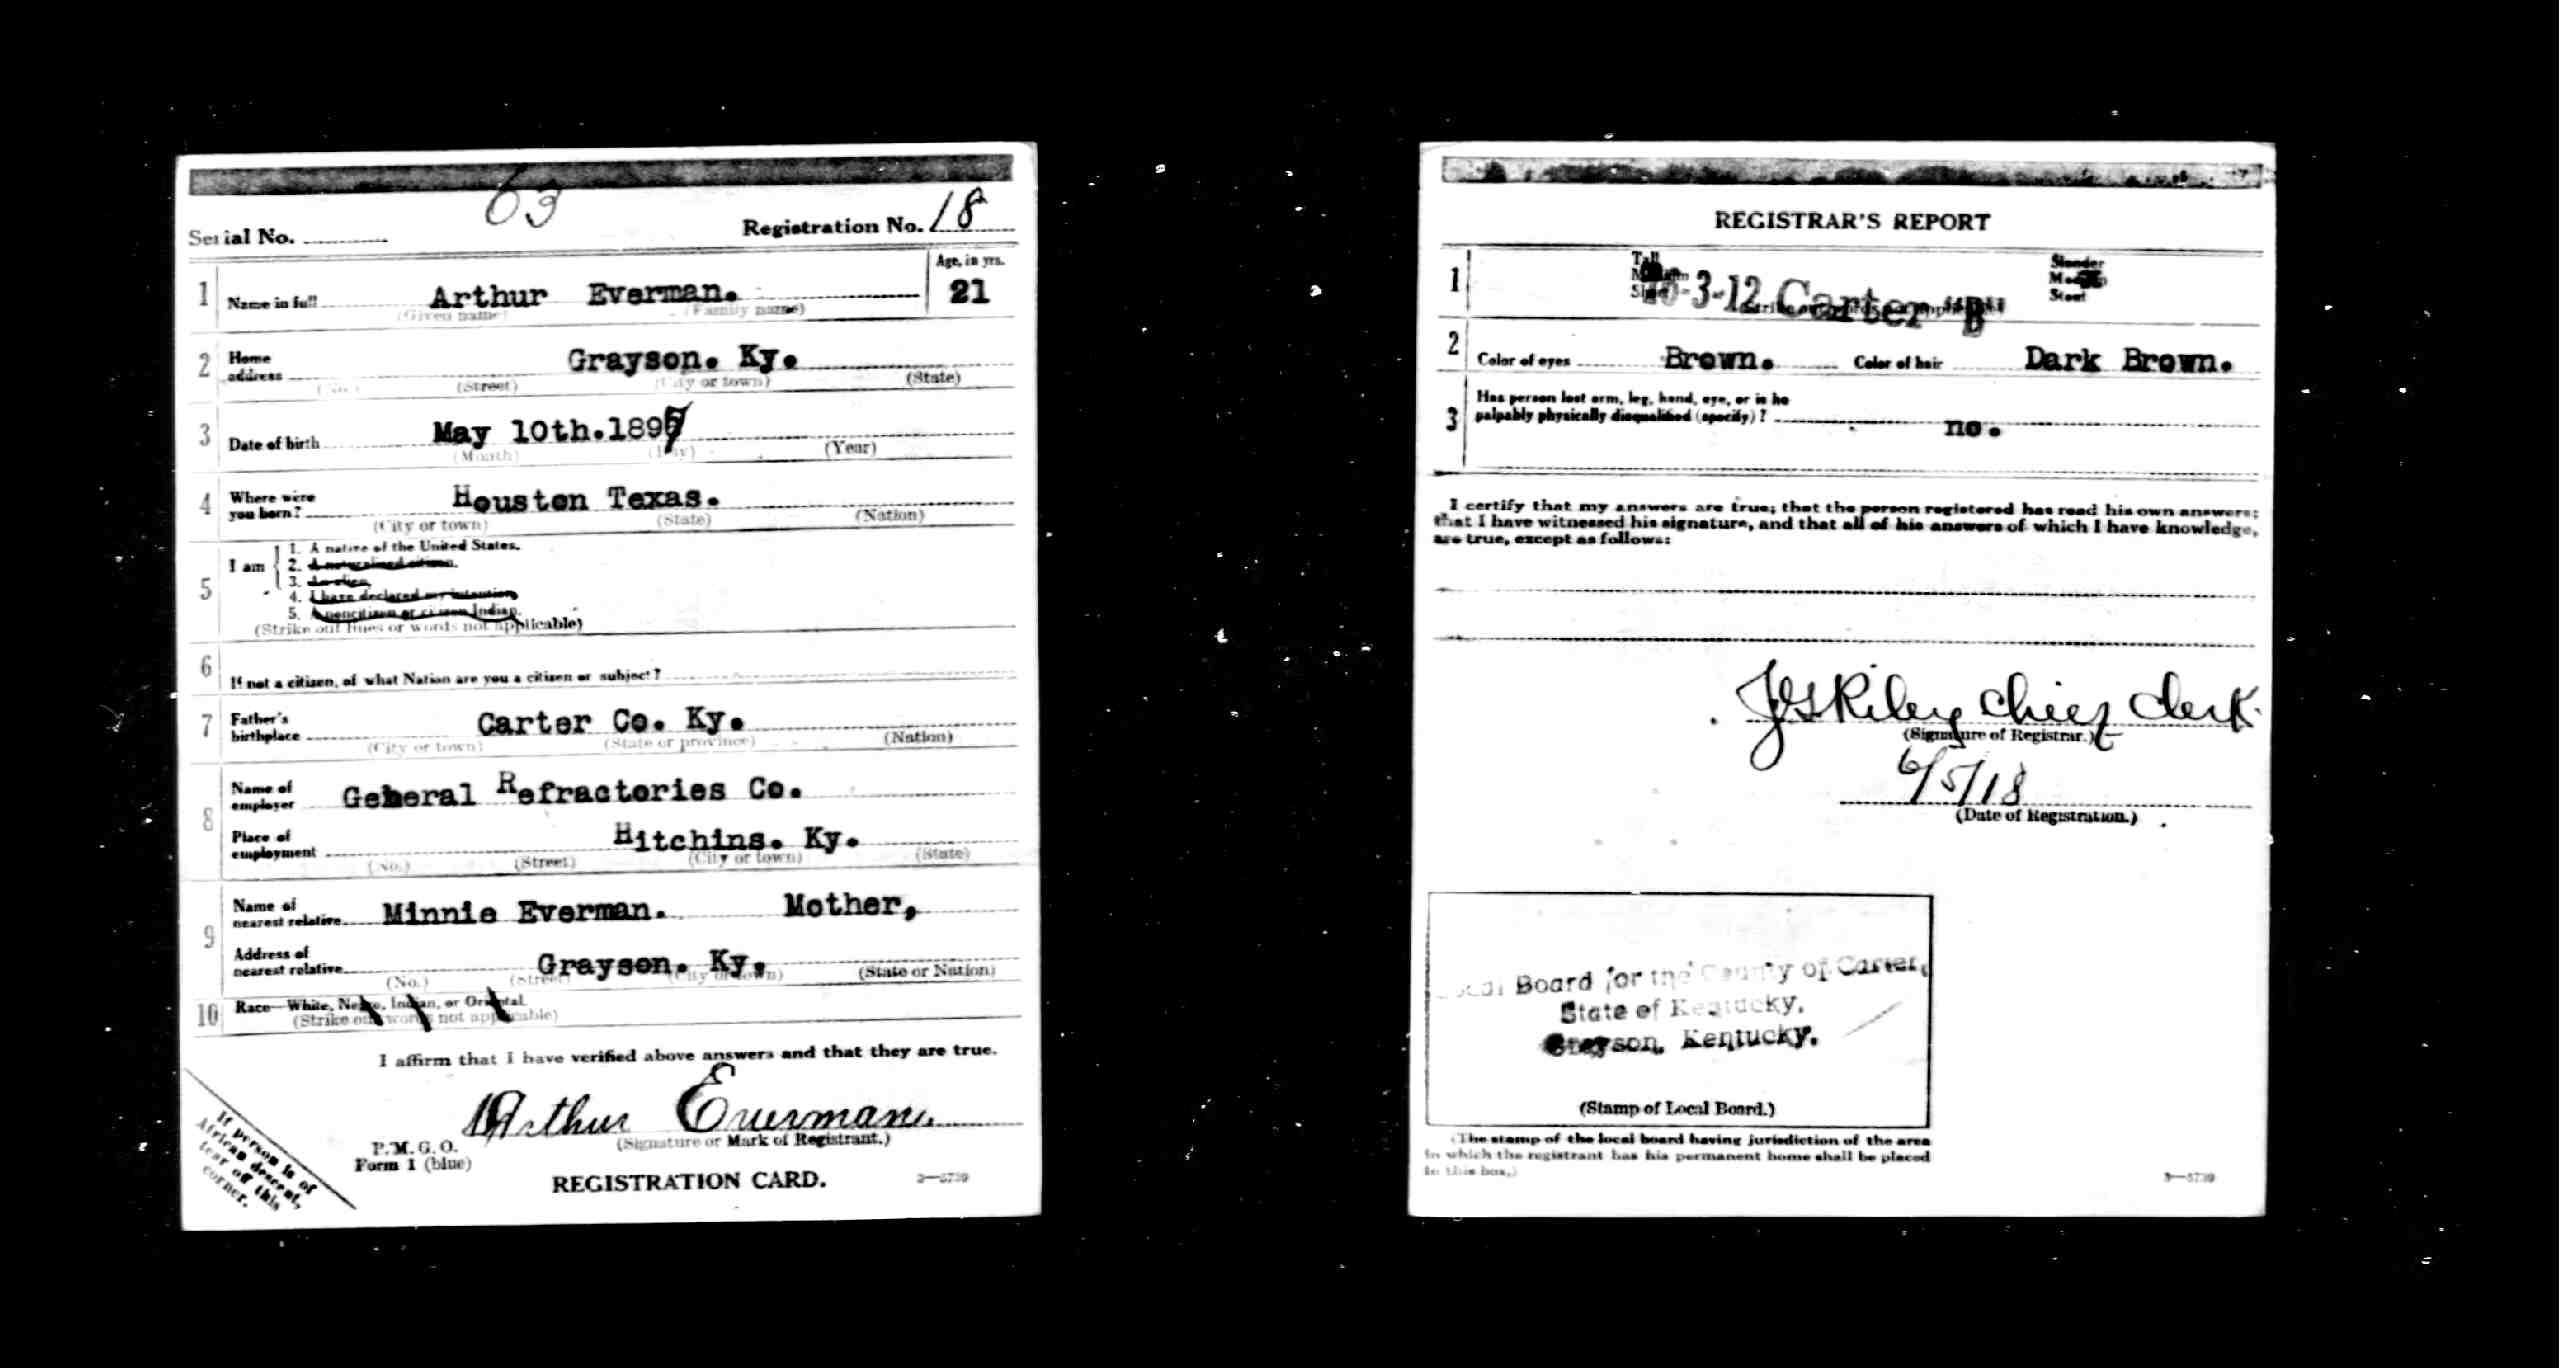 63
Serial No. Registration No. 18
1 Name in full Arthur Everman. Age, in yrs. 21
(Given name) (Family name)
2 Home address Grayson. Ky.
(No.) (Street) (City or town) (State)
3 Date of birth May 10th.1897
(Month) (Day) (Year)
4 Where were you born? Houston Texas.
(City or town) (State) (Nation)
5 I am
1. A native of the United States.
2. A naturalized citizen.
3. An alien,
4. I have declared my intention
5. A noncitizen or citizen Indian.
(Strike out lines or words not applicable)
6 If not a citizen, of what Nation are you a citizen or subject?
7 Father's birthplace Carter Co. Ky.
(City or town) (State or province) (Nation)
8 Name of employer General Refractories Co.
Place of employment Hitchins. Ky.
(No.) (Street) (City or town) (State)
9 Name of nearest relative Minnie Everman. Mother,
Address of nearest relative Grayson. Ky.
(No.) (Street) (City or town) (State or Nation)
10 Race—White, Negro, Indian, or Oriental.
(Strike out words not applicable)
I affirm that I have verified above answers and that they are true.
Arthur Everman
(Signature or Mark of Registrant.)
P. M. G. O.
Form 1 (blue)
REGISTRATION CARD.
3—5739
If person is of
African descent,
tear off this
corner.
REGISTRAR'S REPORT
1 Tall Slender
Medium Medium
Short Stout
-3-12 Carter B
2 Color of eyes Brown. Color of hair Dark Brown.
3 Has person lost arm, leg, hand, eye, or is he
palpably physically disqualified (specify)? no.
I certify that my answers are true; that the person registered has read his own answers;
that I have witnessed his signature, and that all of his answers of which I have knowledge,
are true, except as follows:
Riley Chief Clerk.
(Signature of Registrar.)
6/5/18
(Date of Registration.)
Local Board for the County of Carter,
State of Kentucky,
Grayson, Kentucky.
(Stamp of Local Board.)
(The stamp of the local board having jurisdiction of the area
in which the registrant has his permanent home shall be placed
in this box.)
3—5739